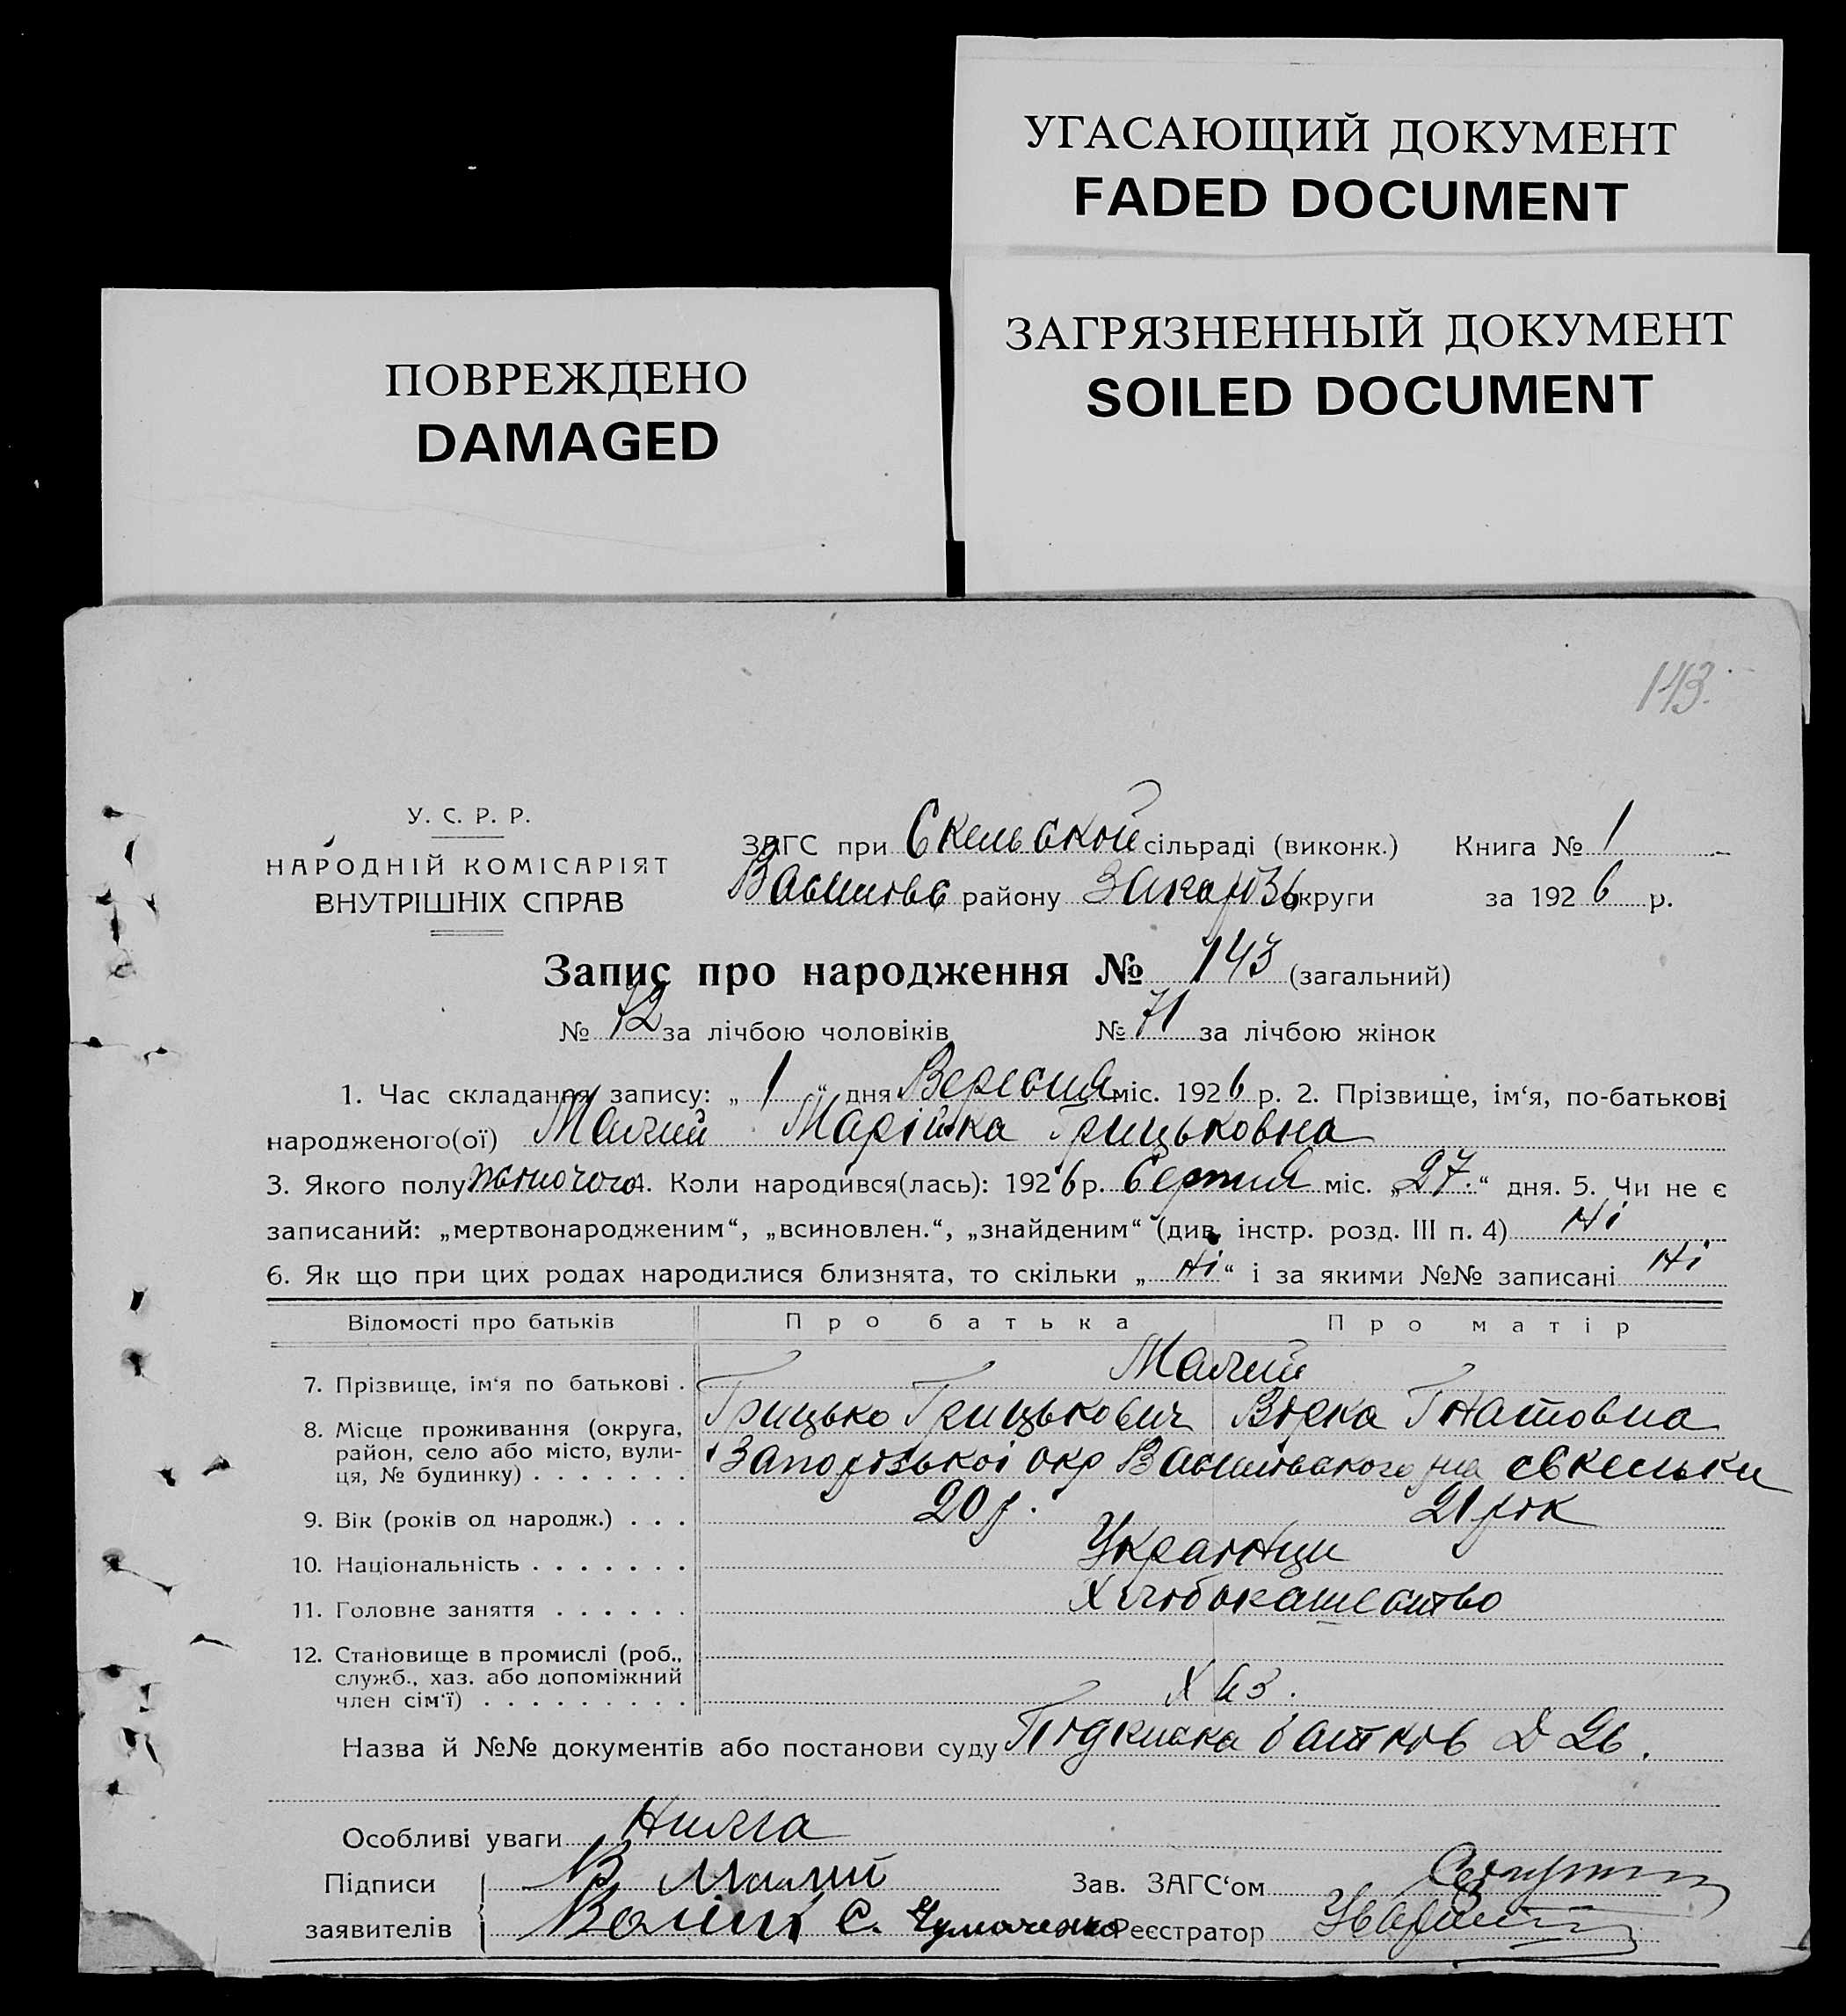 УГАСАЮЩИЙ ДОКУМЕНТ
FADED DOCUMENT
ЗАГРЯЗНЕННЫЙ ДОКУМЕНТ
SOILED DOCUMENT
ПОВРЕЖДЕНО
DAMAGED
143.
У. С. Р. Р.
НАРОДНІЙ КОМІСАРІЯТ
ВНУТРІШНІХ СПРАВ
ЗАГС при Скельской сільраді (виконк.) Книга № 1
Василівс району округи за 1926 р.
Запис про народження № 143 (загальний)
№ 72 за лічбою чоловіків № 71 за лічбою жінок
1. Час складання запису: „ 1 “ дня Вересня міс. 1926 р. 2. Прізвище, ім‘я, по-батькові
народженого(ої) Малий Марійка Грицьковна
3. Якого полу жіночого 4. Коли народився(лась): 1926 р. Серпня міс. „ 27. “ дня. 5. Чи не є
записаний: „мертвонародженим“, „всиновлен.“, „знайденим“ (див. інстр. розд. III п. 4) Ні
6. Як що при цих родах народилися близнята, то скільки „ Ні “ і за якими №№ записані Ні
Відомості про батьків Про батька Про матір
7. Прізвище, ім‘я по батькові . Малий
Грицько Грицькович Вірка Гнатовна
8. Місце проживання (округа, район, село або місто, вули-
ця, № будинку) . . . . . . . Запорізької окр Василівського р-на с Скельки
9. Вік (років од народж.) . . . 20 р. 21 рік
10. Національність . . . . . . . Українци
11. Головне заняття . . . . . . Хлібокашество
12. Становище в промислі (роб.,
служб., хаз. або допоміжний
член сім‘ї) . . . . . . . . . Хаз.
Назва й №№ документів або постанови суду Підписка батків
Особливі уваги Нима
Підписи Малий Зав. ЗАГС‘ом
заявителів С. Чумаченко Реєстратор